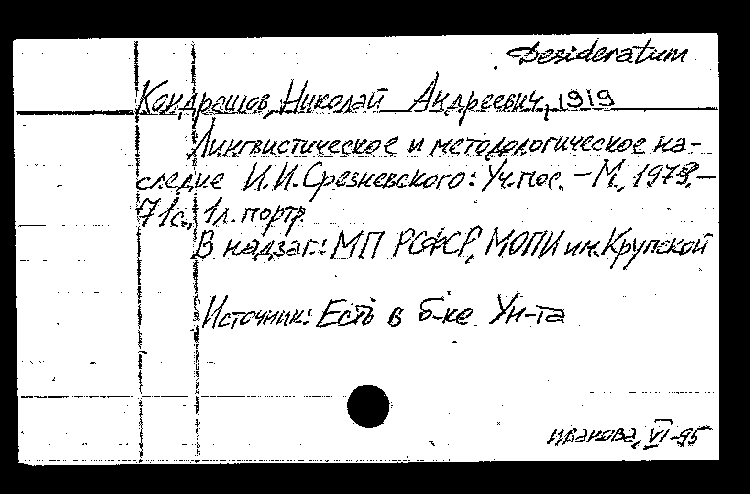 Desideratum
Кондрашов, Николай Андреевич, 1919
Лингвистическое и методологическое на-
следие И. И. Срезневского: Уч. пос. – М., 1979. –
71с., 1л. портр.
В надзаг.: МП РСФСР, МОПИ им. Крупской
Источник: Есть в б-ке Ун-та
Иванова, VI-95